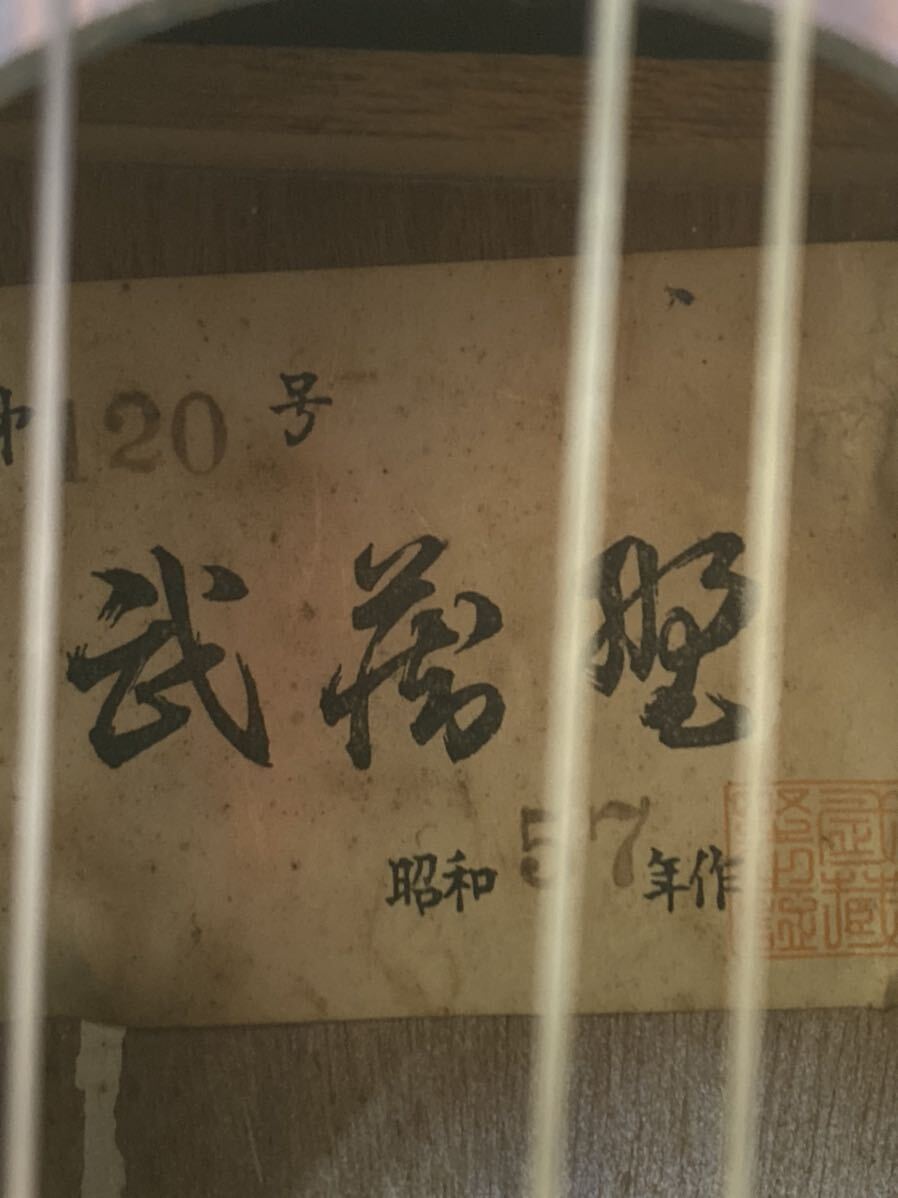 第120号
武蔵野
昭和57年作